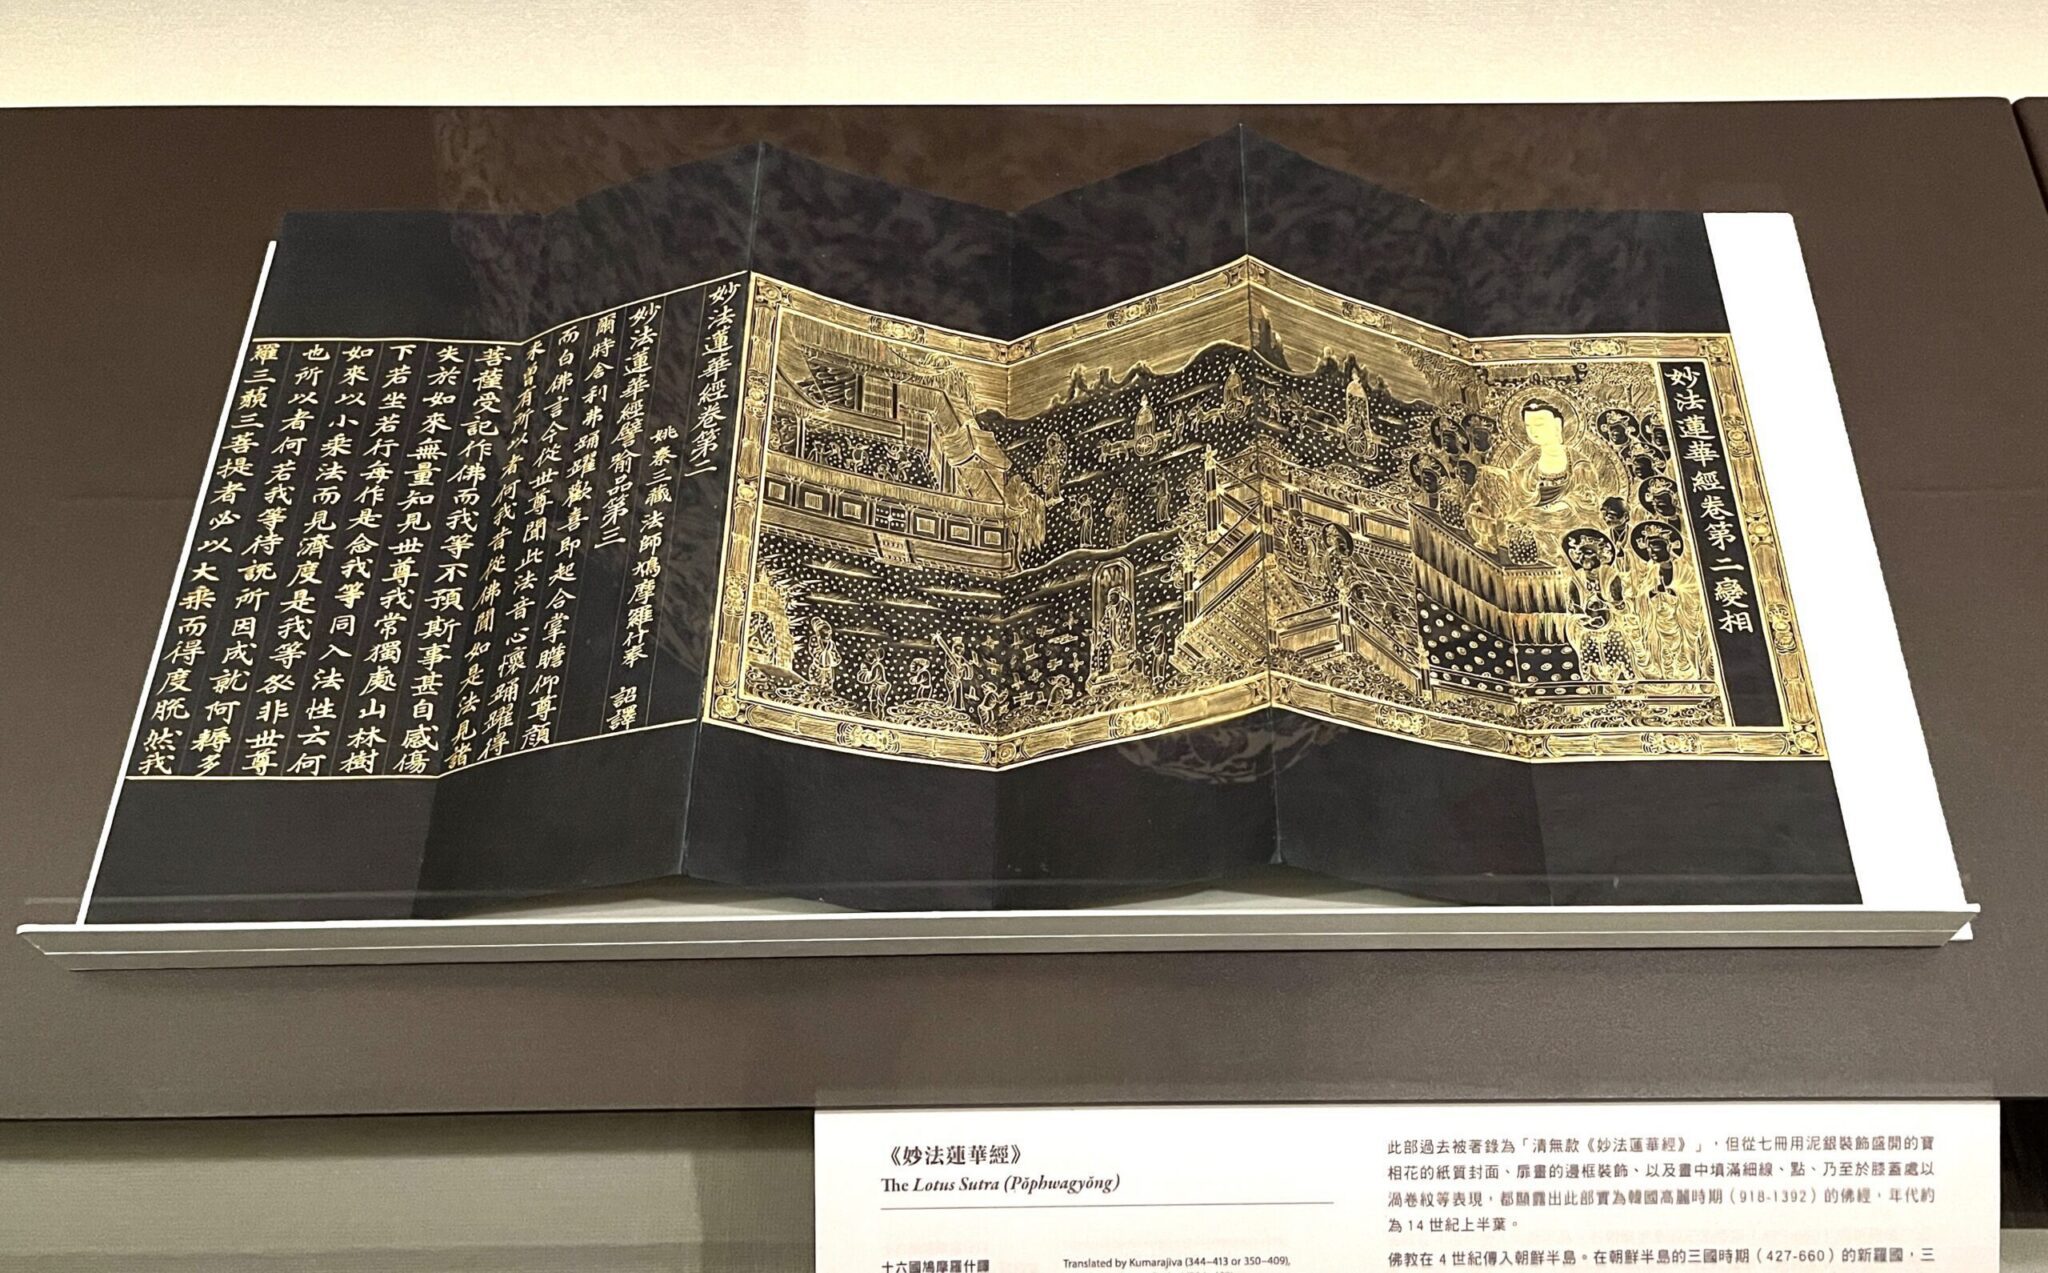 妙法蓮華經卷第二變相
妙法蓮華經卷第二
姚秦三藏法師鳩摩羅什奉 詔譯
妙法蓮華經譬喻品第三
爾時舍利弗踊躍歡喜即起合掌瞻仰尊顏
而白佛言今從世尊聞此法音心懷踊躍得
未曾有所以者何我昔從佛聞如是法見諸
菩薩受記作佛而我等不預斯事甚自感傷
失於如來無量知見世尊我常獨處山林樹
下若坐若行每作是念我等同入法性云何
如來以小乘法而見濟度是我等咎非世尊
也所以者何若我等待說所因成就阿耨多
羅三藐三菩提者必以大乘而得度脫然我
《妙法蓮華經》
The Lotus Sutra (Pŏphwagyŏng)
十六國鳩摩羅什譯
Translated by Kumarajiva (344–413 or 350–409),
此部過去被著錄為「清無款《妙法蓮華經》」，但從七冊用泥銀裝飾盛開的寶
相花的紙質封面、扉畫的邊框裝飾、以及畫中填滿細線、點、乃至於膝蓋處以
渦卷紋等表現，都顯露出此部實為韓國高麗時期（918-1392）的佛經，年代約
為14世紀上半葉。
佛教在4世紀傳入朝鮮半島。在朝鮮半島的三國時期（427-660）的新羅國，三